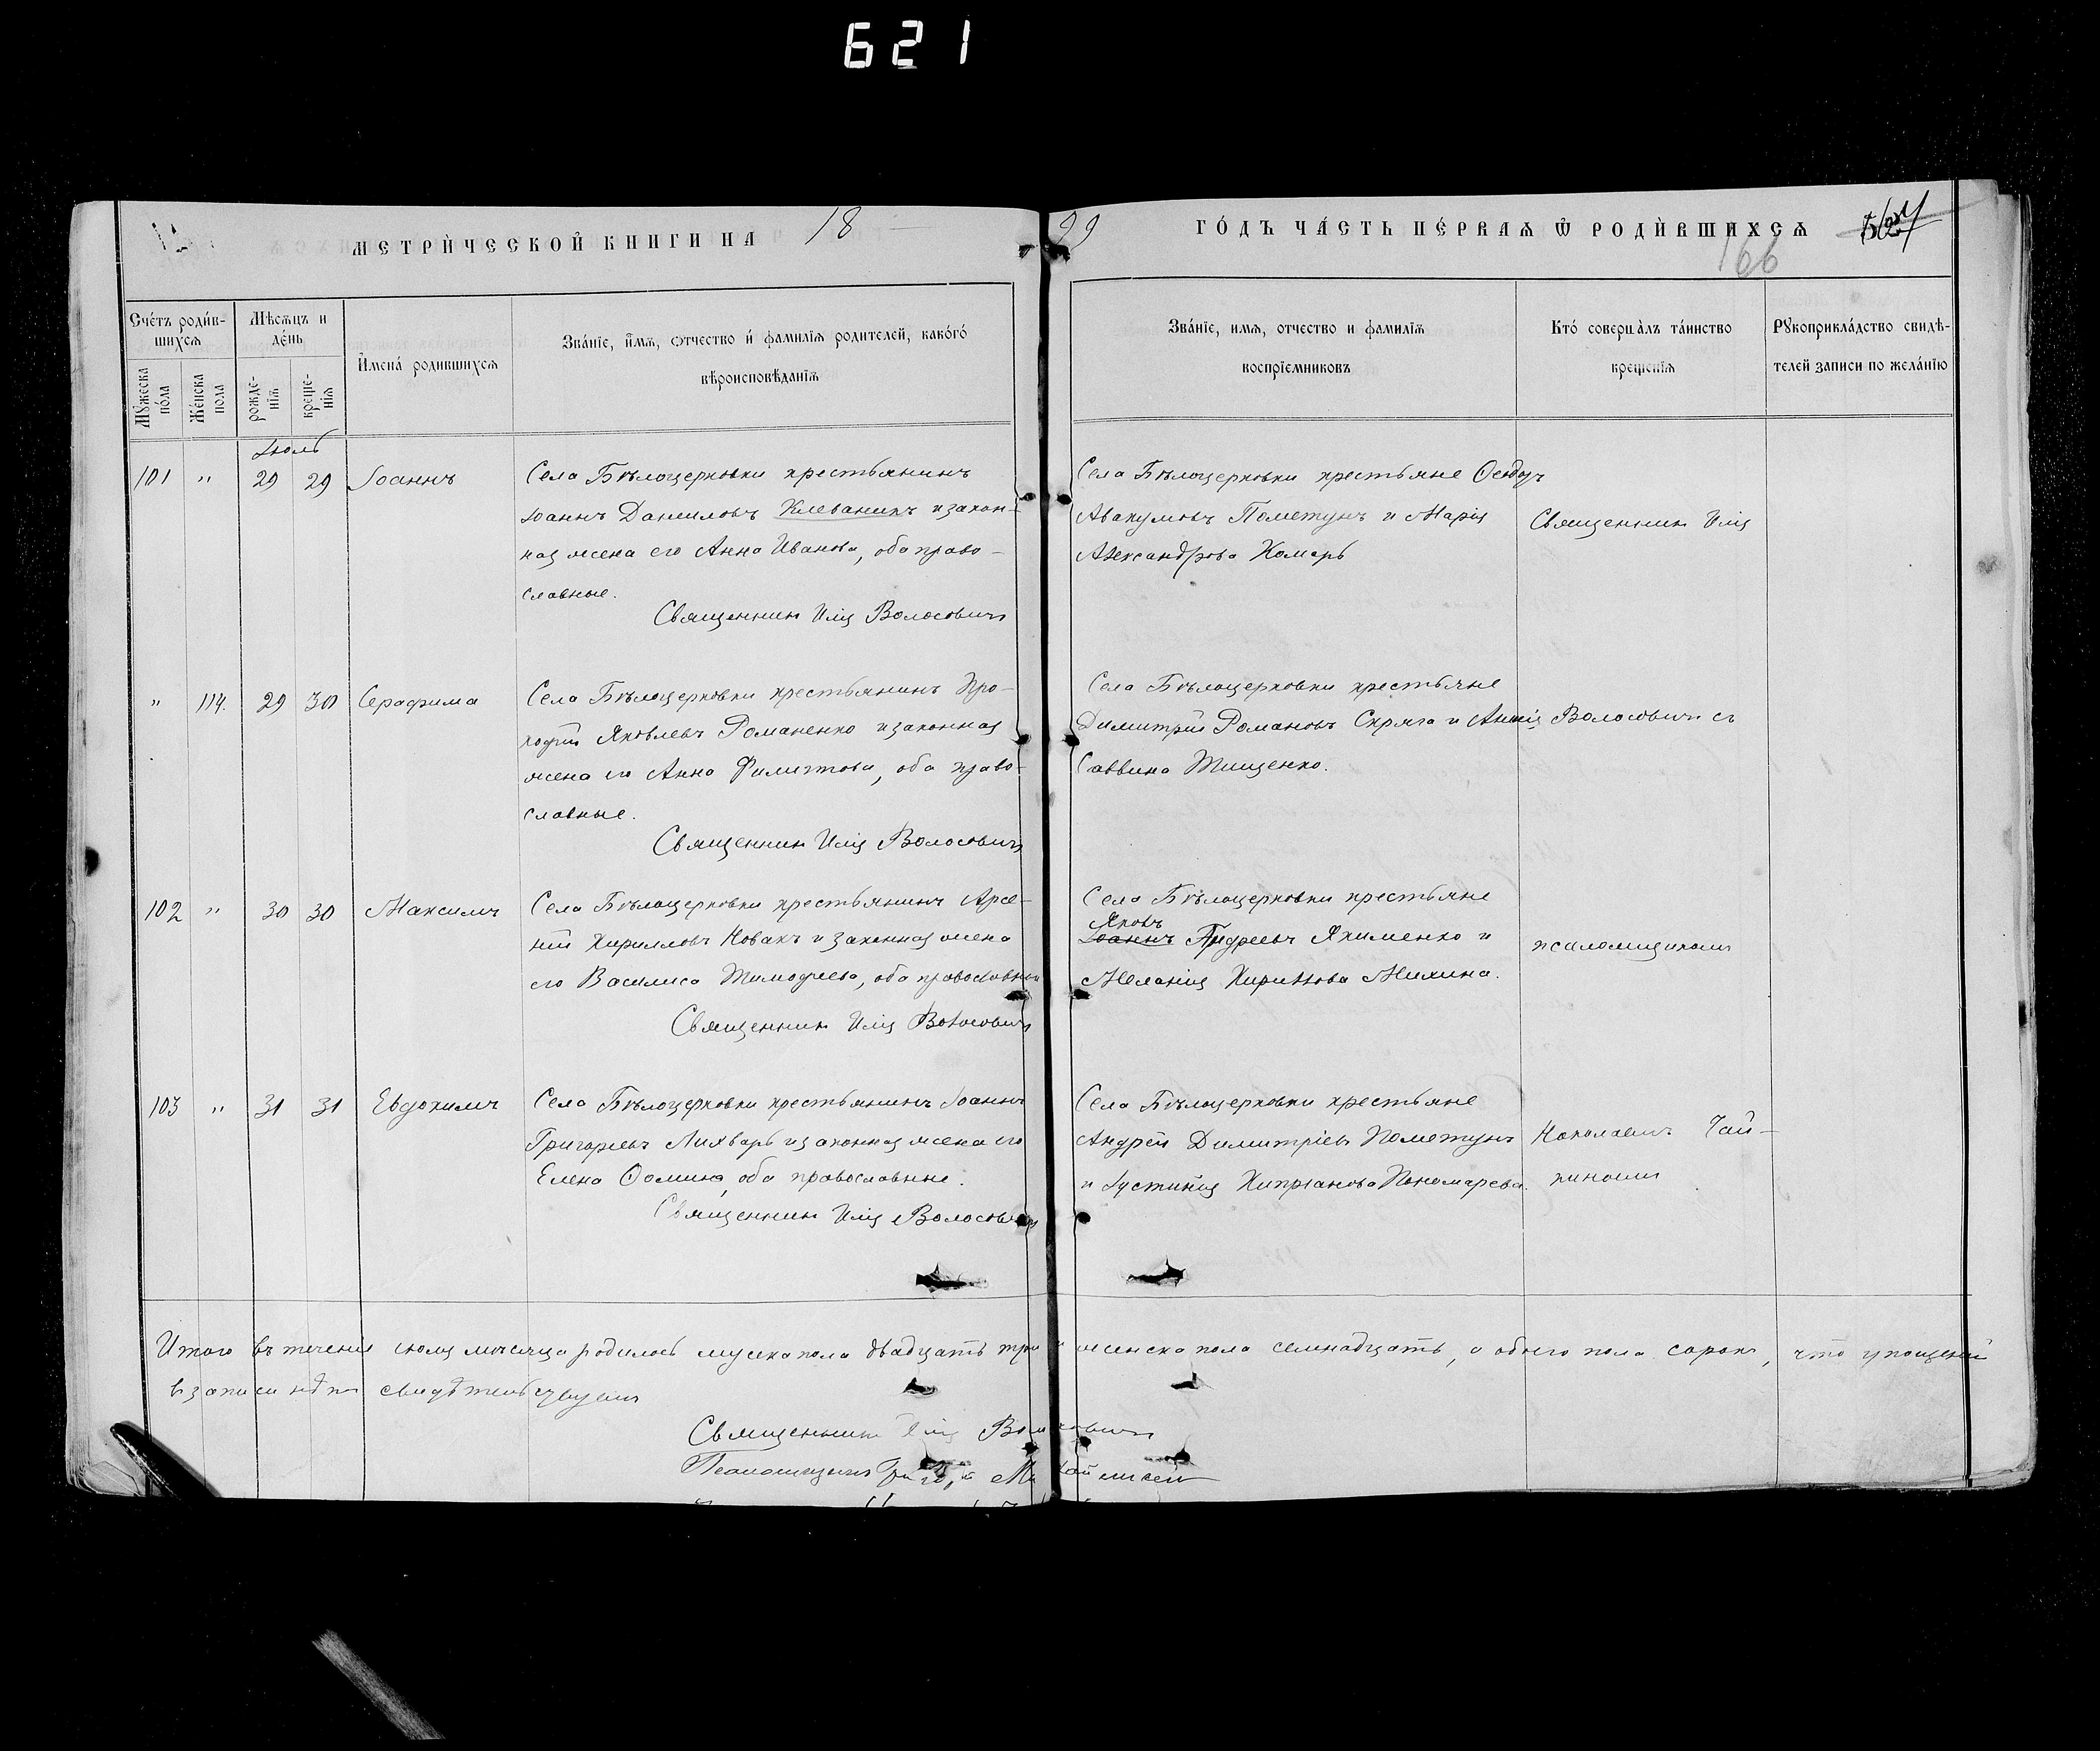 621
МЕТРИ́ЧЕСКОЙ КНИГИ НА 18
99 ГО́ДЪ ЧА́СТЬ ПЕ́РВАѦ Ѿ РОДИ́ВШИХСѦ
166
Сче́тъ роди́в-
шихсѧ
Мѣсѧцъ и
де́нь
И҆мена́ родившихсѧ
Зва́нїе, и҆мѧ, ѻтчество и҆ фамилїѧ родителей, како́го́
вѣроисповѣданїѧ
Мꙋ́жеска
по́ла
Же́нска
пола
рожде-
нїѧ
креще-
нїѧ
Зва́нїе, имѧ, отчество и фамилїѧ
воспрїемниковъ
Кто́ соверша́лъ та́инство
крещенїѧ
Рꙋкоприкла́дство свидѣ-
телей записи по жела́нїю
Іюль
101 " 29 29 Іоаннъ
Села Бѣлоцерковки крестьянинъ
Іоаннъ Даниловъ Клеваникъ и закон-
ная жена его Анна Иванова, оба право-
славные.
Священникъ Илія Волосовичъ
Села Бѣлоцерковки крестьяне Ѳеодоръ
Авакумовъ Пометунъ и Марія
Александрова Комарь
Священникъ Илія
" 114. 29 30 Серафима
Села Бѣлоцерковки крестьянинъ Про-
кофій Яковлевъ Романенко и законная
жена его Анна Филиппова, оба право-
славные.
Священникъ Илія Волосовичъ
Села Бѣлоцерковки крестьяне
Димитрій Романовъ Скряга и
Саввина Тищенко.
Волосовичъ съ
102 " 30 30 Максимъ
Села Бѣлоцерковки крестьянинъ Арсе-
ній Кирилловъ Новакъ и законная жена
его Василиса Тимофеева, оба православные
Священникъ Илія Волосовичъ
Села Бѣлоцерковки крестьяне
Яковъ
Іоаннъ Андреевъ Якименко и
Меланія Кириллова Михина.
псаломщикомъ
103 " 31 31 Евдокимъ
Села Бѣлоцерковки крестьянинъ Іоаннъ
Григорьевъ Лихварь и законная жена его
Елена Ѳомина, оба православные.
Священникъ Илія Волосовичъ
Села Бѣлоцерковки крестьяне
Андрей Димитріевъ Пометунъ
и Іустинія Кипріанова Пономарева.
Николаемъ Чай-
кинымъ
Итого въ теченіе іюля мѣсяца родилось мужска пола двадцать три и женска пола семнадцать, а обоего пола сорокъ, что упощеній
въ записи нѣтъ свидѣтельствуемъ
Священникъ Илія Волосовичъ
Псаломщикъ